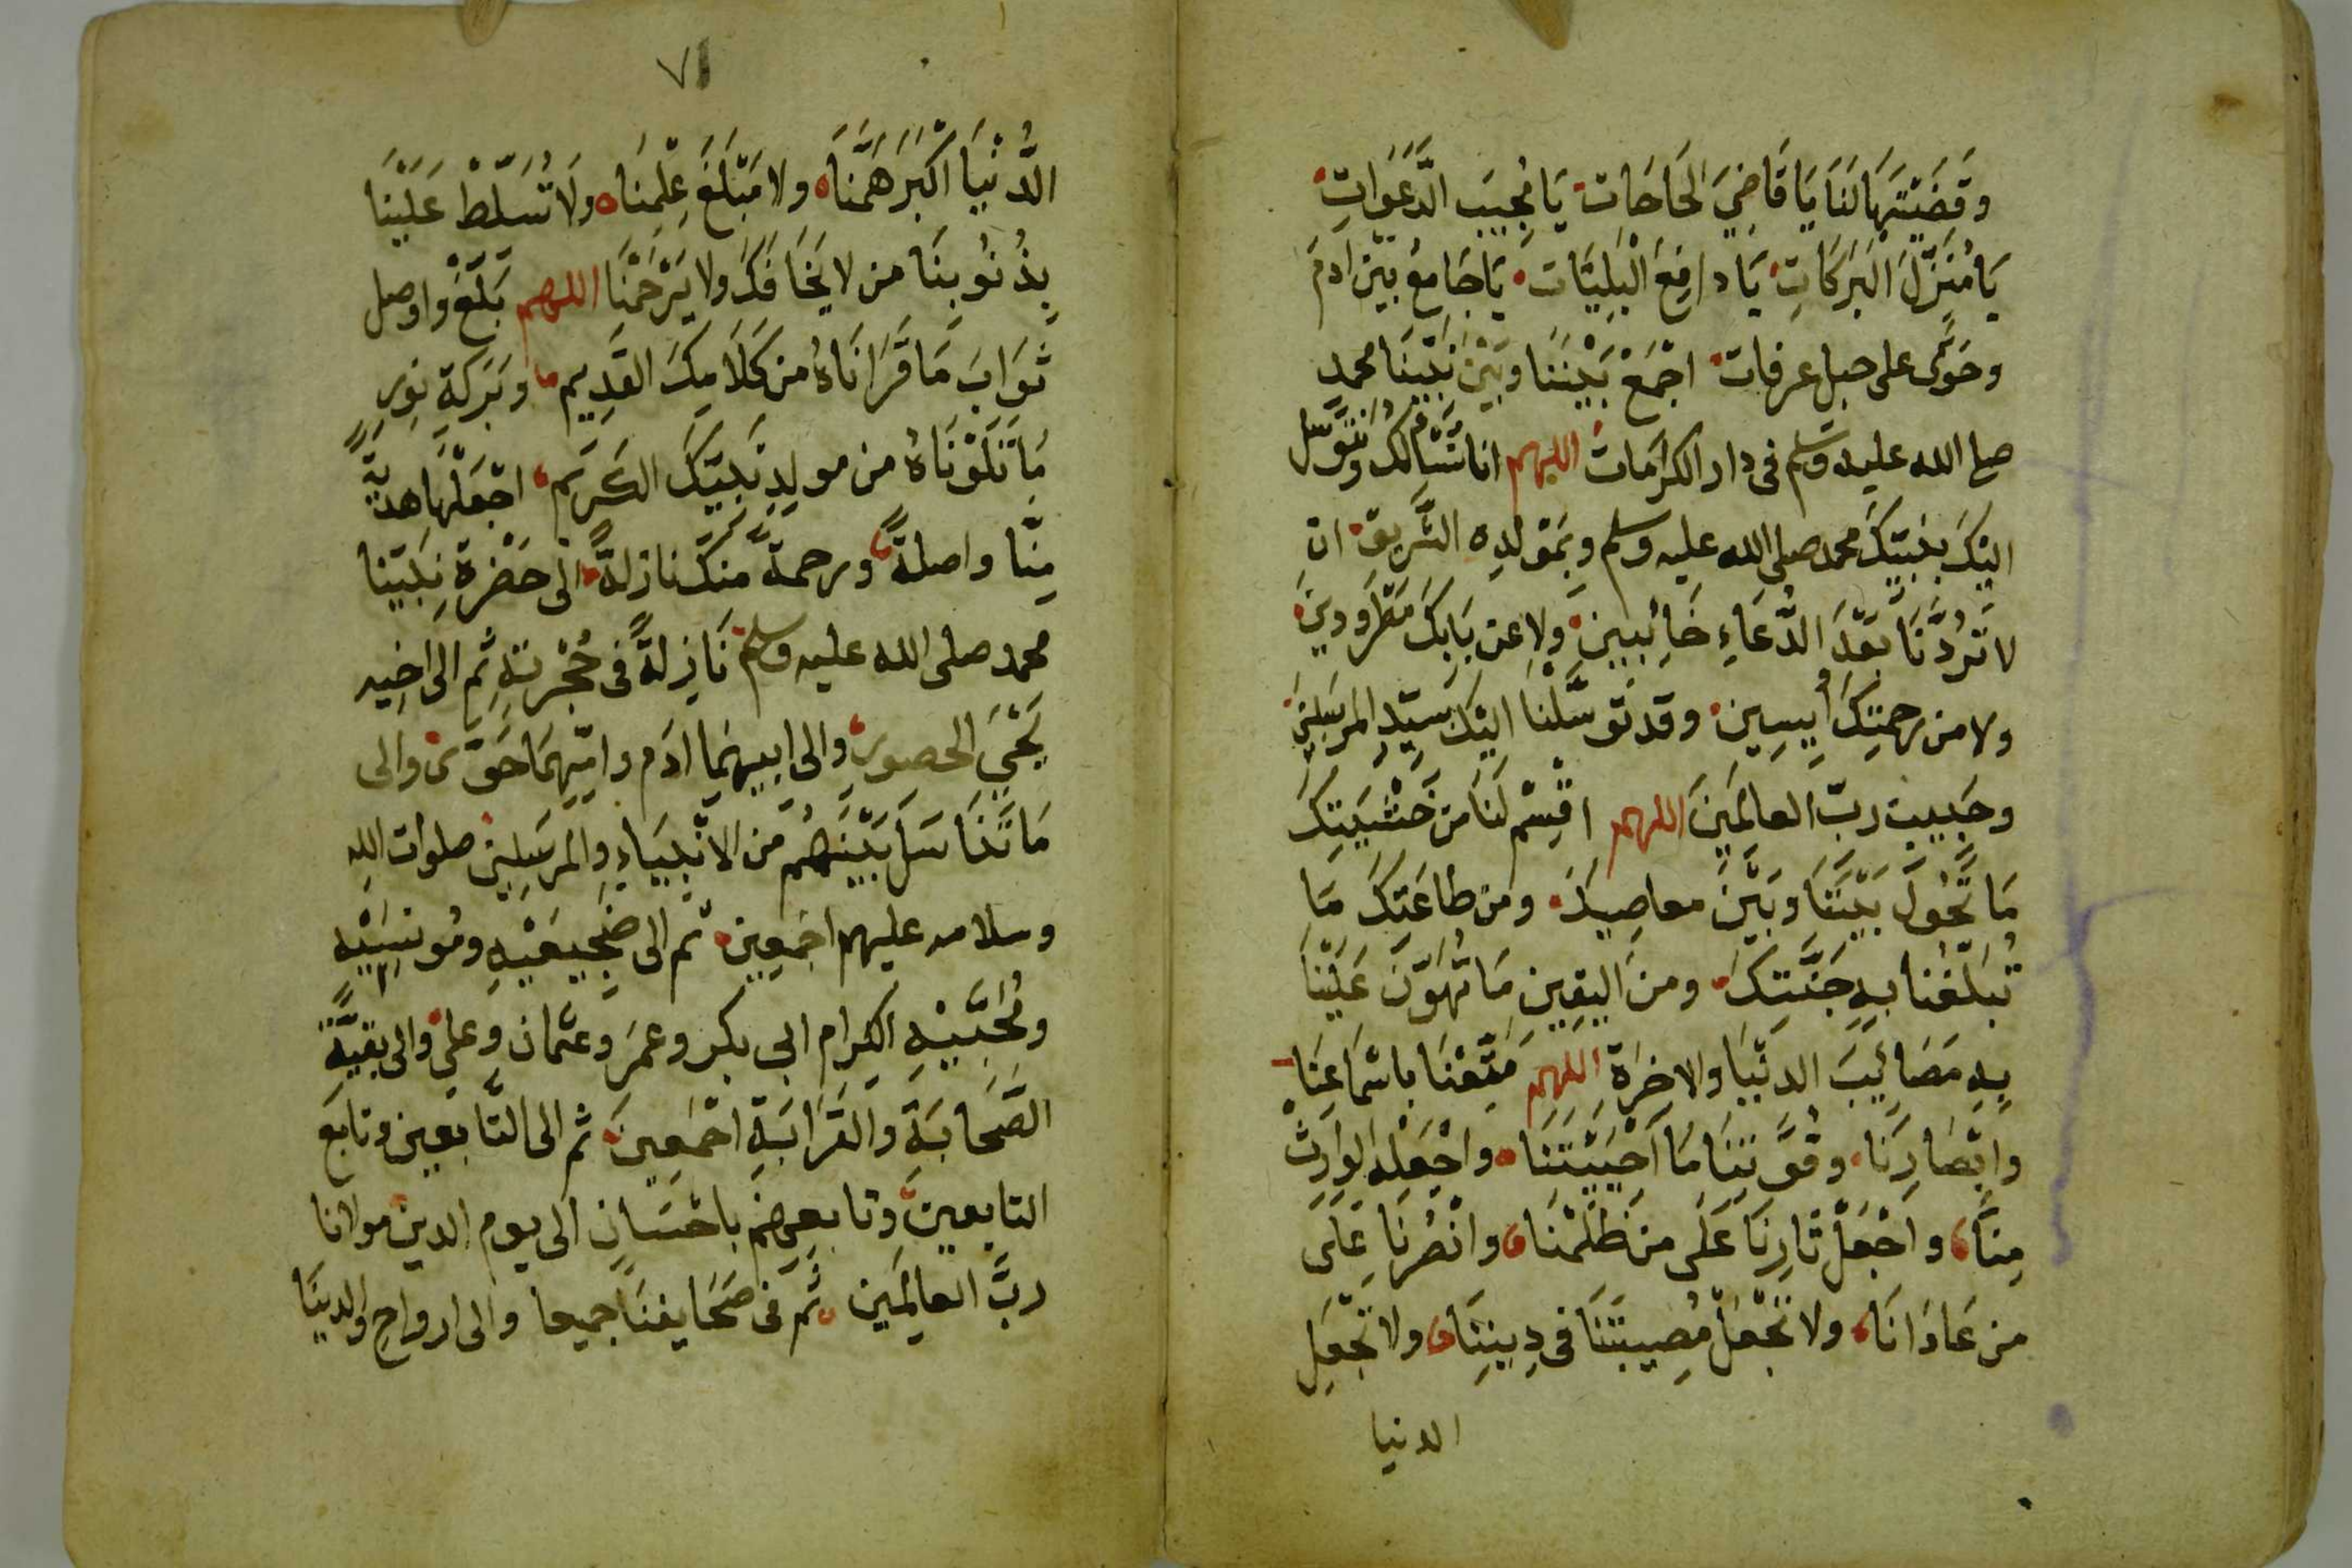 وَقَضَيْتَهَا لَنَا يَا قَاضِيَ الحَاجَات يَا مُجِيبَ الدَّعَوَاتِ
يَا مُنَزِّلَ البَرَكَاتِ يَا دَافِعَ الْبَلِيَّات يَا جَامِعُ بَيْنَ ادَمَ
وحَوَّى على جبل عرفات اجْمَعْ بَيْنَنَا وبَيْنَ نَبِيِّنَا محمدٍ
صلى الله عليه وسلم فى دار الكرَامَات اللهم انا نَسْأَلُكَ ونتوسل
اليْكَ بنَبِيِّكَ محمد صلى الله عليه وسلم وبمَوْلِدِه الشَّرِيف ان
لا تَرُدَّنَا بَعْدَ الدُّعَاءِ خَائِبِينَ ولا عن بَابِكَ مَطْرُودِينَ
ولا من رحمتِكَ أيِسِين وقد تَوَسَّلْنَا اليْكَ بِسَيِّدِ المرسَلِينَ
وحَبِيبِ ربِّ العالَمِينَ اللهم اقْسِمْ لَنَا مَن خَشْيَتِكَ
مَا تَحُولُ بَيْنَنَا وبَيْنَ معاصِيكَ ومن طاعَتِكَ مَا
تُبَلِّغُنا بِهِ جَنَّتَكَ ومنَ اليَقِينِ مَا تُهَوِّنُ عَلَيْنَا
بِهِ مَصَائِبَ الدنْيَا والاخرَةِ اللهم مَتِّعْنَا باسْمَاعِنَا
وابْصَارِنَا وقُوَّتِنَا مَا أَحْيَيْتَنَا واجْعَلْه الوَارِثَ
مِنَّا واجْعَلْ ثَارَنَا عَلَى مَن ظَلَمْنَا وانْصُرْنَا عَلَى
من عَادَانَا ولا تَجْعَلْ مُصِيبَتَنَا فى دِينِنَا ولا تَجْعَلِ
الدنيا
٧١
الدُّنْيَا اكْبَرَ هَمِّنَا ولا مَبْلَغَ عِلْمِنَا ولَا تُسَلِّطْ عَلَيْنَا
بِذُنُوبِنَا من لا يَخَافُكَ ولا يَرْحَمُنَا اللهم بَلِّغْ واوصل
ثَوَابَ مَا قَرَانَاهُ من كَلَامِكَ القَدِيم وبَرَكَةِ نورِ
مَا تَلَوْنَاهُ من مولِدِ نَبِيِّكَ الكَرِيم اجْعَلْهَا هديَّةً
مِنَّا واصلةً ورحمةً منكَ نازلةً الى حَضْرَةِ نَبِيِّنا
محمد صلى الله عليه وسلم نَازِلَةً فى حُجْرتِهِ ثم الى اخِيه
يَحْيَى الحصور والى ابيهِمَا ادَم وامِّهِمَا حَوّى والى
مَا تَنَاسَلَ بَيْنَهُم من الانْبِيَاءِ والمرسَلِين صلوات اللهِ
وسلامه عليهم اجمَعِين ثم الى ضَجِيعَيْهِ ومُونسَيْهِ
ومُحِبَّيْهِ الكِرام ابى بكر وعمَر وعثمان وعلي والى بَقيَّة
الصَّحَابَةِ والقَرَابَةِ اجْمَعِينَ ثم الى التَّابِعين وتابَعِ
التابعينَ وتابعيهم باحْسَانٍ الى يوم الدين مولانا
ربَّ العالَمِين ثم فى صَحَايِفِنَا جميعا والى ارواحِ والدِينَا